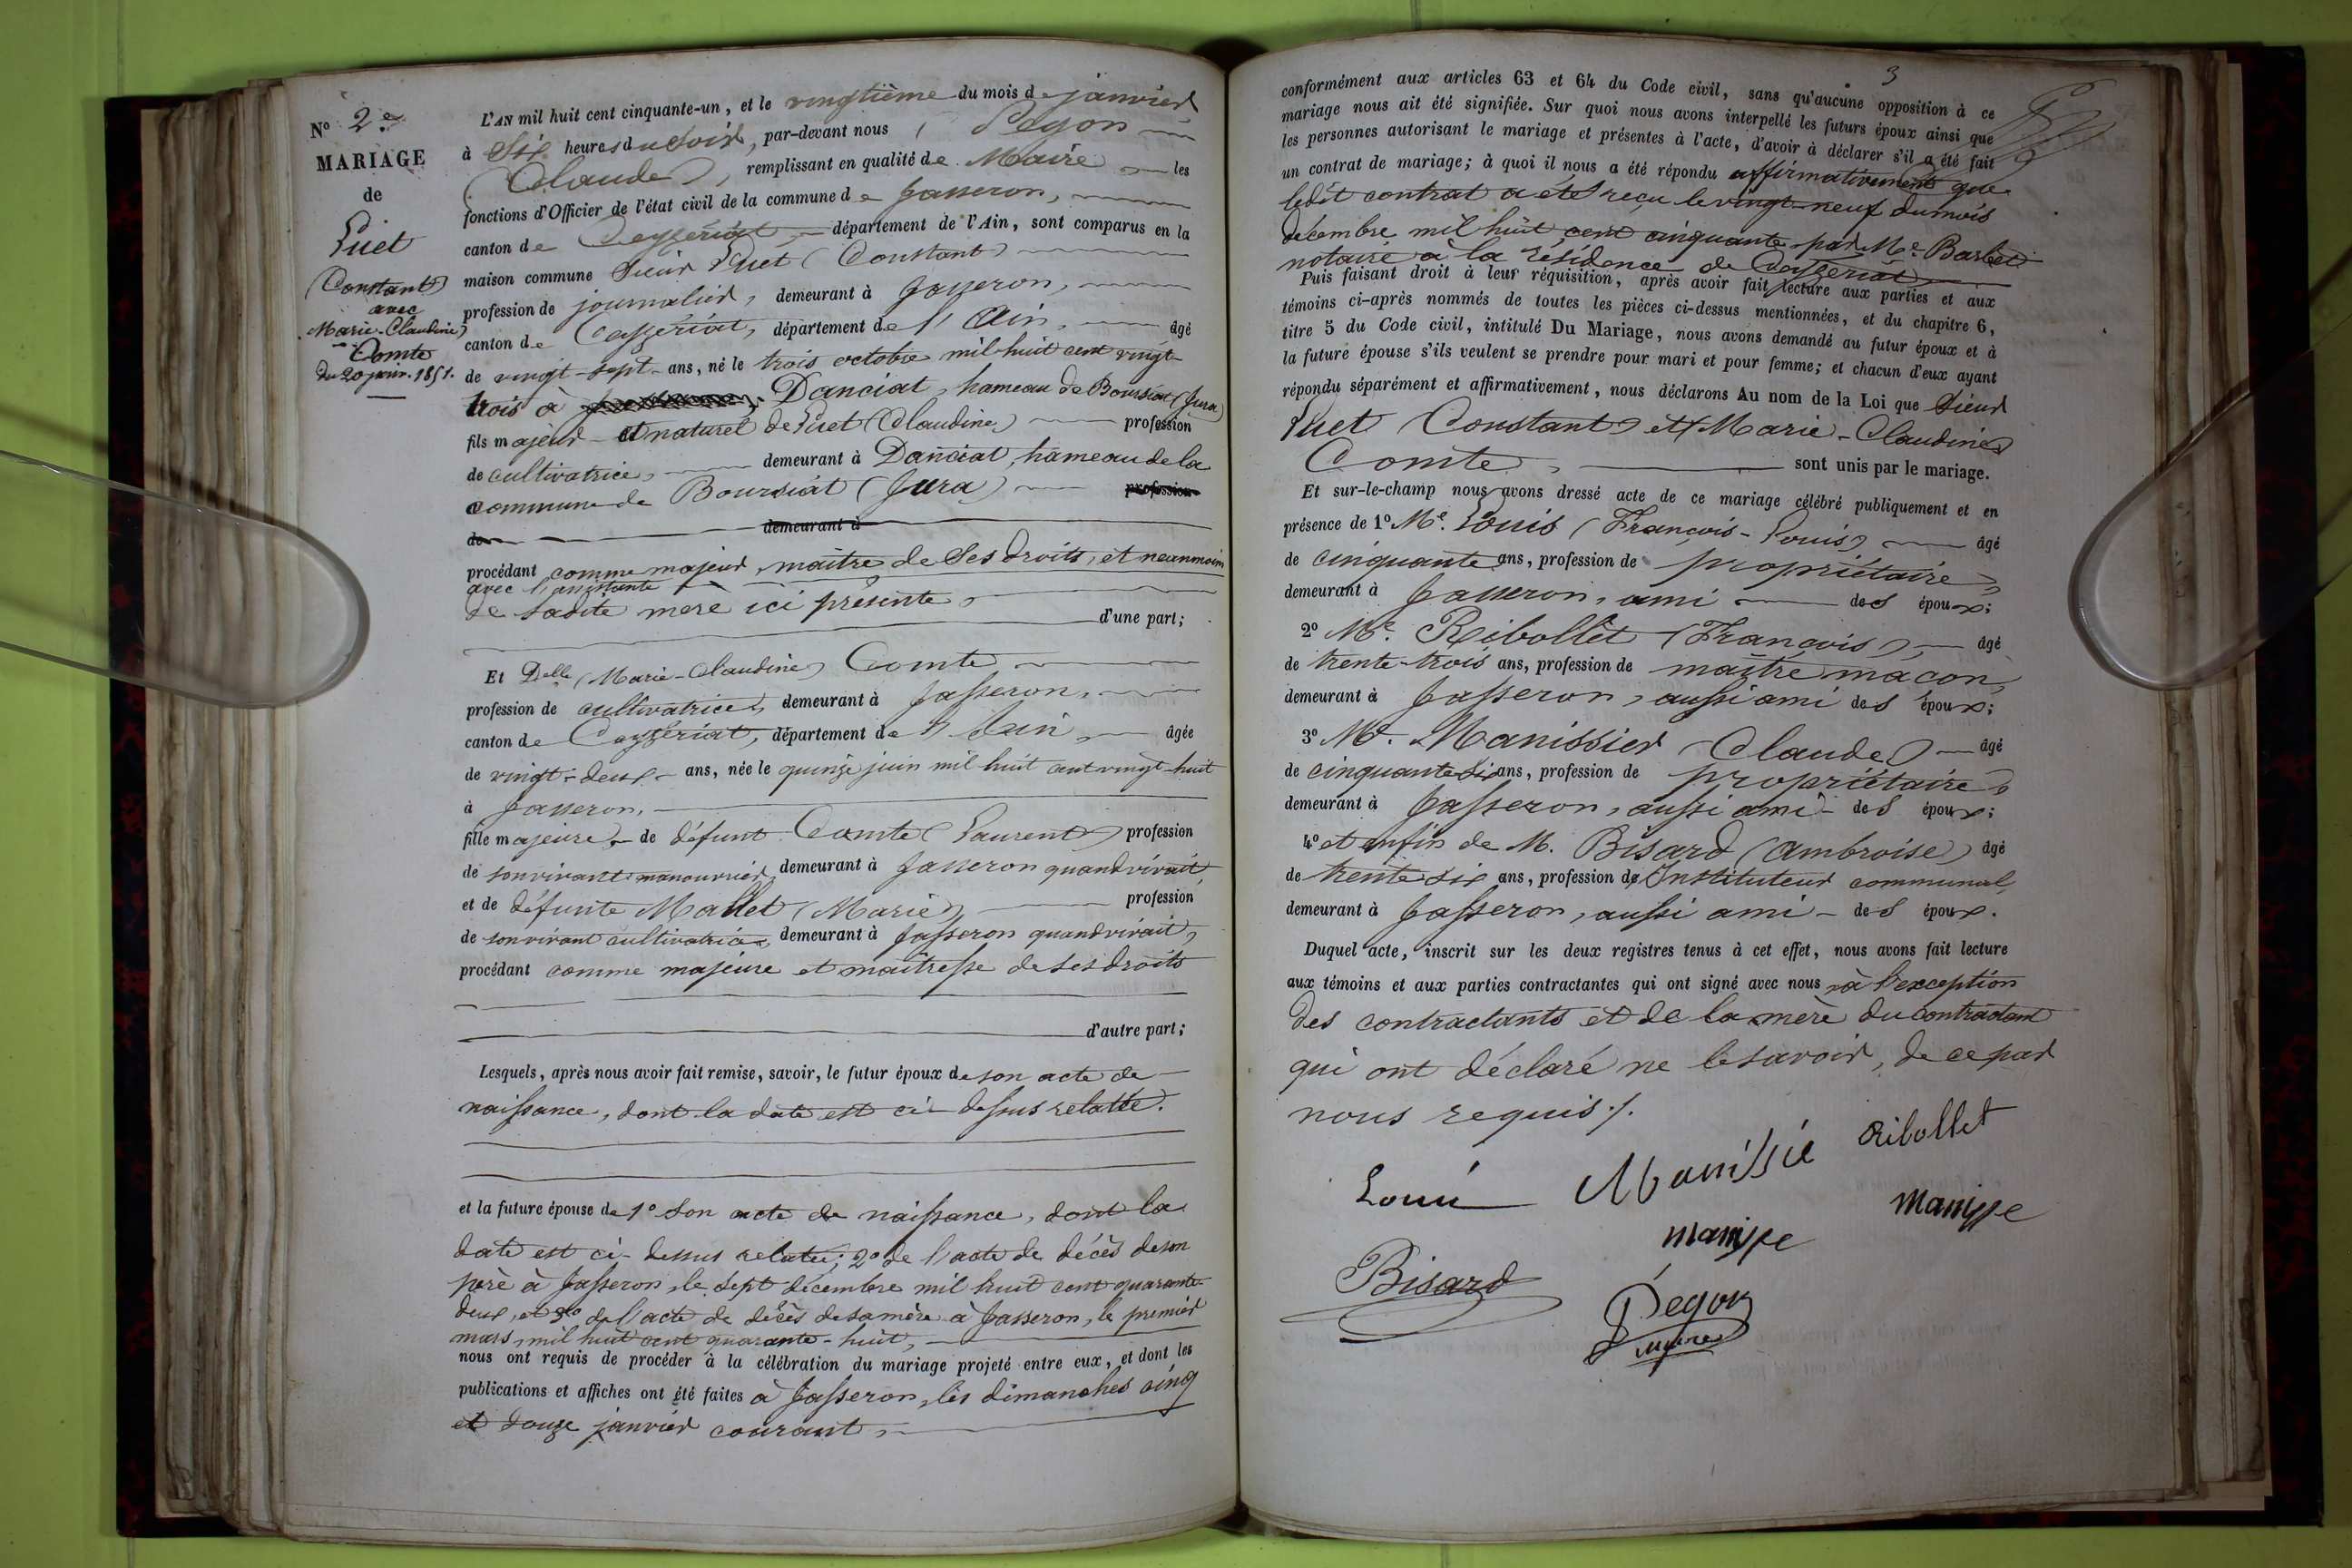 N° 2e
MARIAGE
de
Puet
(Constant)
avec
Marie-Claudine
Comte
du 20 janv. 1851.
L'AN mil huit cent cinquante-un, et le vingtième du mois de janvier
à Six heures du Soir, par-devant nous Pegon
(Claude), remplissant en qualité de Maire les
fonctions d'Officier de l'état civil de la commune de Jasseron,
canton de Ceyzériat, département de l'Ain, sont comparus en la
maison commune Sieur Puet (Constant)
profession de journalier, demeurant à Jasseron,
canton de Ceyzériat, département de l'Ain, âgé
de vingt-sept ans, né le trois octobre mil huit cent vingt-
trois à Danciat, hameau de Boursiat (Jura)
fils majeur et naturel de Puet (Claudine) profession
de cultivatrice, demeurant à Danciat, hameau de la
commune de Boursiat (Jura) profession
de demeurant à
procédant comme majeur, maître de Ses droits, et néanmoins
avec l'assistante
de sadite mère ici présente,
d'une part;
Et Delle (Marie-Claudine) Comte
profession de cultivatrice, demeurant à Jasseron,
canton de Ceyzériat, département de l'Ain, âgée
de vingt-deux ans, née le quinze juin mil huit cent vingt-huit
à Jasseron,
fille majeure de défunt Comte (Laurent) profession
de son vivant manouvrier, demeurant à Jasseron quand vivait,
et de défunte Mallet (Marie) profession
de son vivant cultivatrice, demeurant à Jasseron quand vivait,
procédant comme majeure et maîtresse de ses droits
d'autre part;
Lesquels, après nous avoir fait remise, savoir, le futur époux de son acte de
naissance, dont la date est ci-dessus relatée.
et la future épouse de 1° son acte de naissance, dont la
date est ci-dessus relatée; 2° de l'acte de décès de son
père à Jasseron, le sept décembre mil huit cent quarante-
deux, et 3° de l'acte de décès de sa mère à Jasseron, le premier
mars, mil huit cent quarante-huit,
nous ont requis de procéder à la célébration du mariage projeté entre eux, et dont les
publications et affiches ont été faites à Jasseron, les dimanches cinq
et douze janvier courant,
3
conformément aux articles 63 et 64 du Code civil, sans qu'aucune opposition à ce
mariage nous ait été signifiée. Sur quoi nous avons interpellé les futurs époux ainsi que
les personnes autorisant le mariage et présentes à l'acte, d'avoir à déclarer s'il a été fait
un contrat de mariage; à quoi il nous a été répondu affirmativement que
ledit contrat a été reçu le vingt-neuf du mois
décembre mil huit cent cinquante par Me. Barbet
notaire à la résidence de Ceyzériat
Puis faisant droit à leur réquisition, après avoir fait lecture aux parties et aux
témoins ci-après nommés de toutes les pièces ci-dessus mentionnées, et du chapitre 6,
titre 5 du Code civil, intitulé Du Mariage, nous avons demandé au futur époux et à
la future épouse s'ils veulent se prendre pour mari et pour femme; et chacun d'eux ayant
répondu séparément et affirmativement, nous déclarons Au nom de la Loi que Sieur
Puet (Constant) et Marie-Claudine
Comte, sont unis par le mariage.
Et sur-le-champ nous avons dressé acte de ce mariage célébré publiquement et en
présence de 1° Mr. Louis (François-Louis) âgé
de cinquante ans, profession de propriétaire
demeurant à Jasseron, ami des époux;
2° Mr. Ribollet (François), âgé
de trente-trois ans, profession de maître maçon,
demeurant à Jasseron, aussi ami des époux;
3° Mr. Manissier (Claude) âgé
de cinquante Six ans, profession de propriétaire,
demeurant à Jasseron, aussi ami des époux;
4° et enfin de M. Bisard (Ambroise) âgé
de trente six ans, profession d'Instituteur communal,
demeurant à Jasseron, aussi ami des époux.
Duquel acte, inscrit sur les deux registres tenus à cet effet, nous avons fait lecture
aux témoins et aux parties contractantes qui ont signé avec nous à l'exception
des contractants et de la mère du contractant
qui ont déclaré ne le savoir, de ce par
nous requis./.
Loui Manissié Ribollet
manisse manisse
Bisard
Pegon
maire